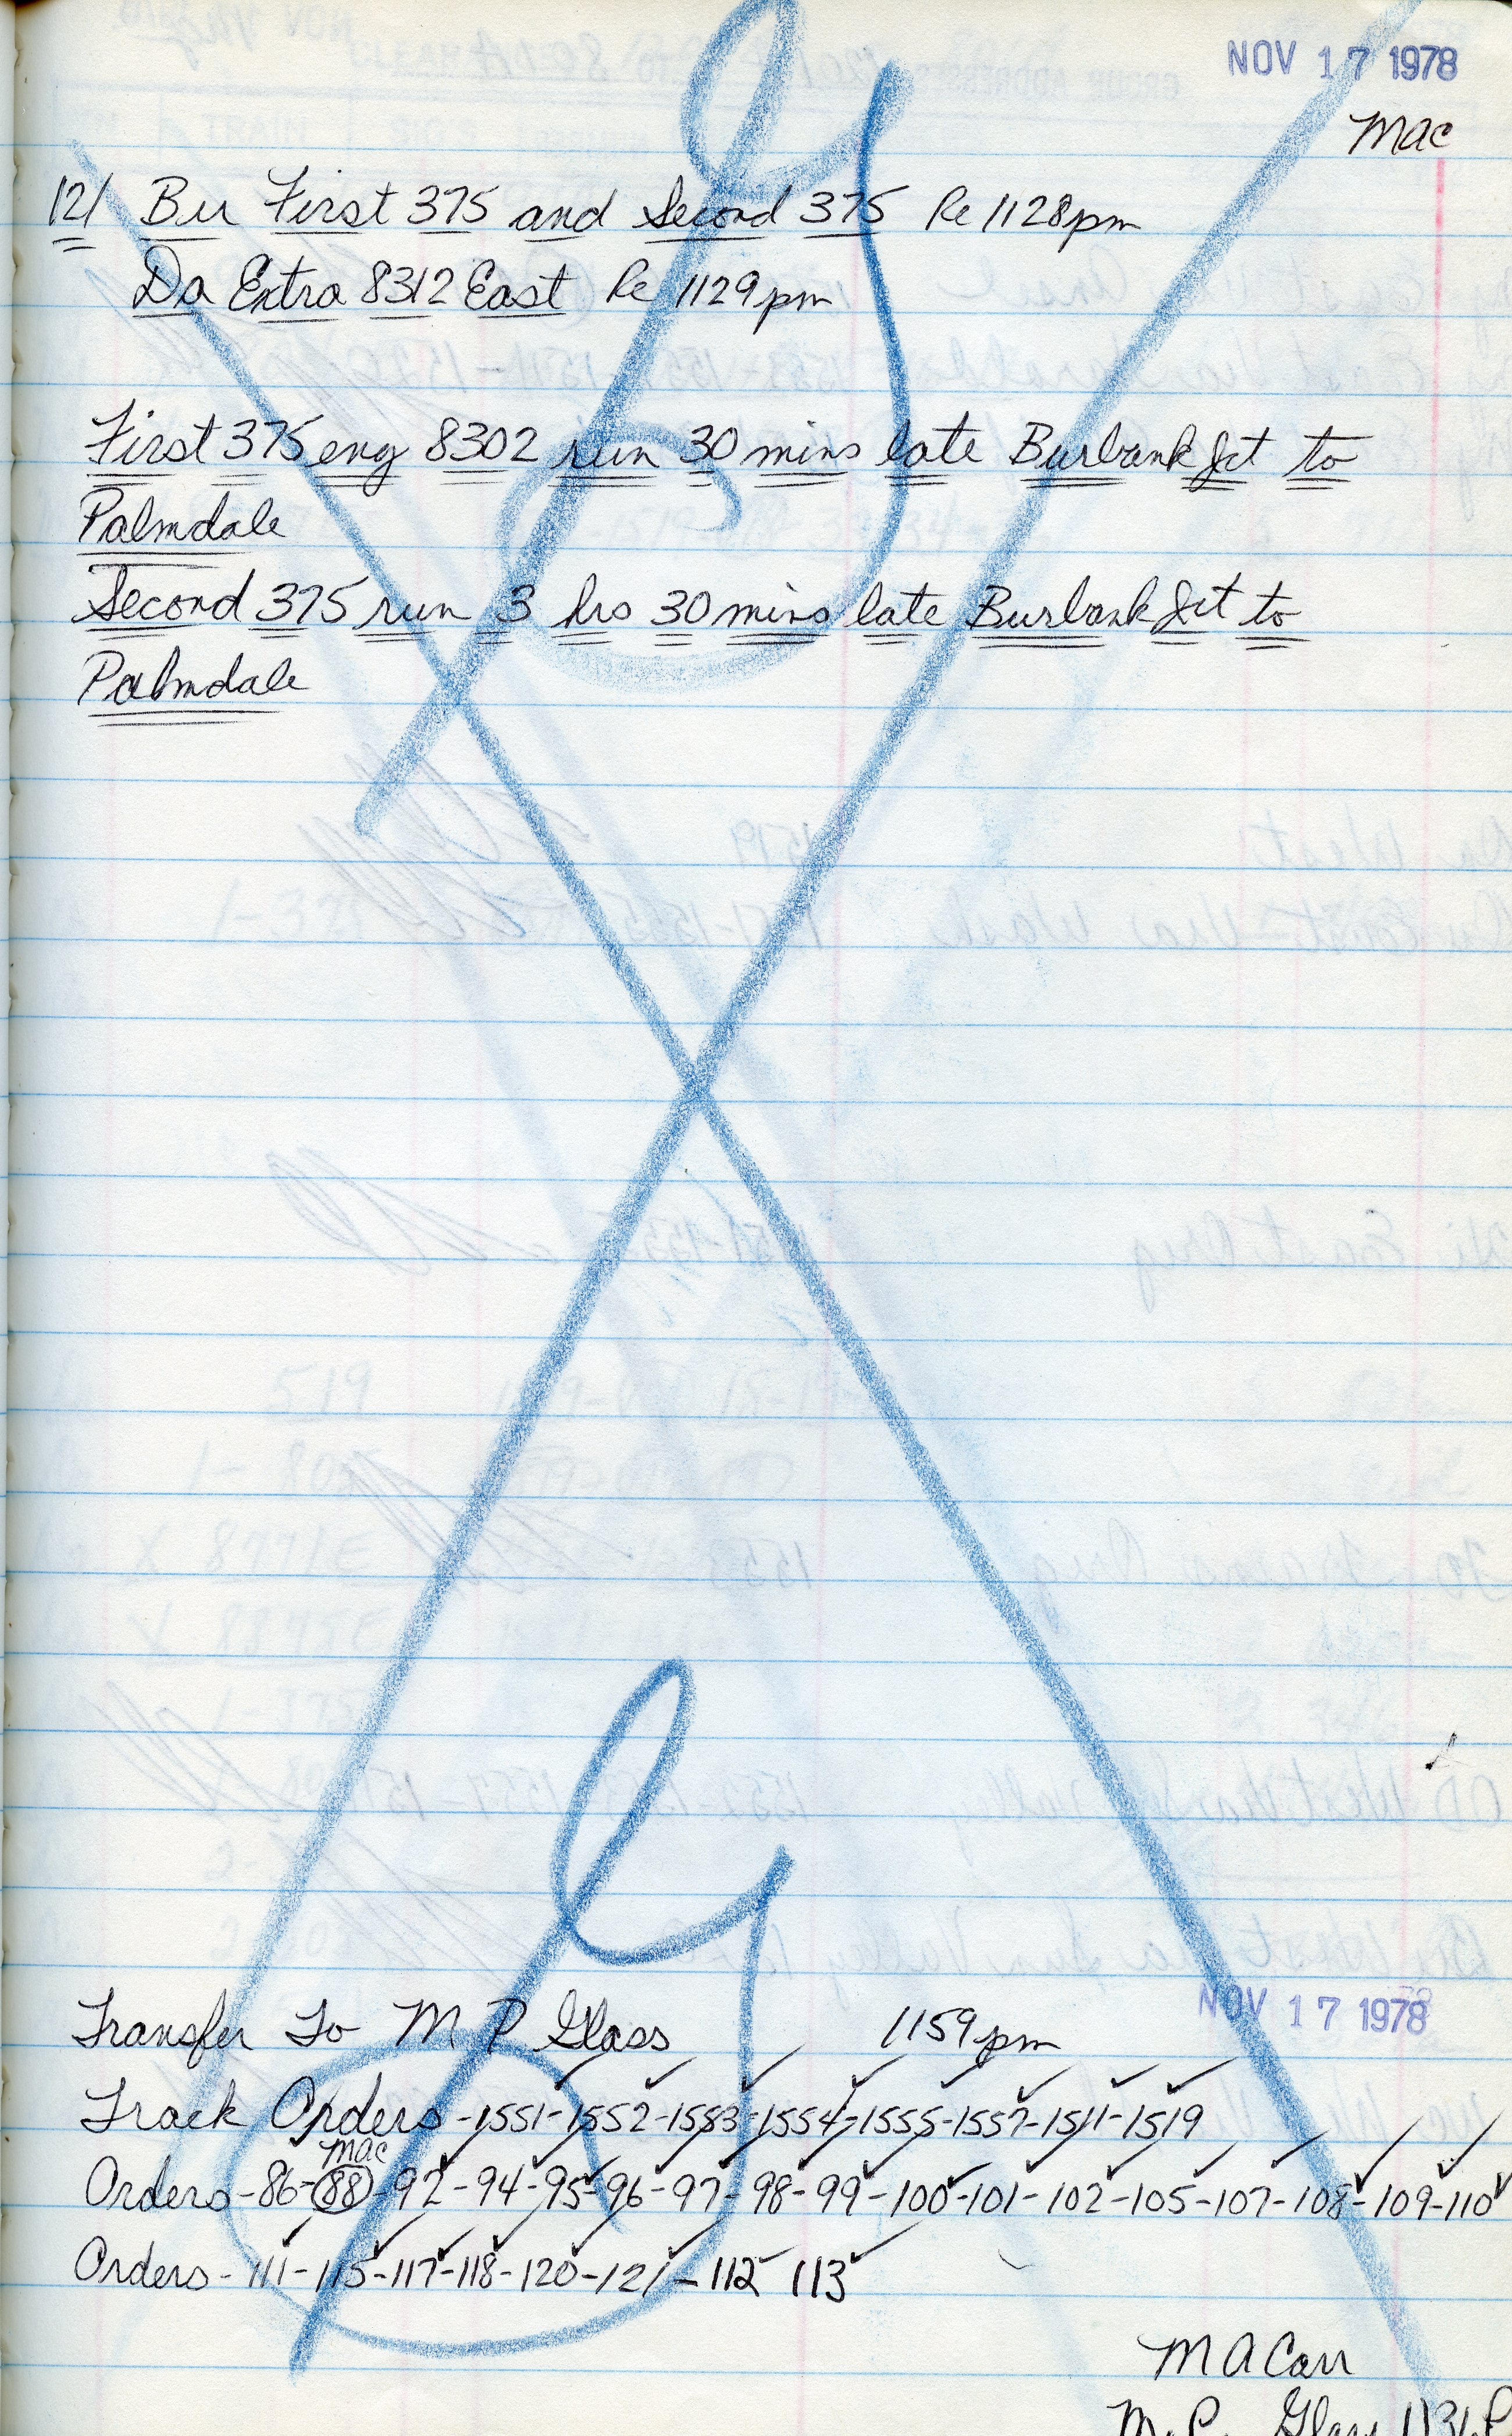 NOV 17 1978
Mac
121 Bu First 375 and Second 375 Re 1128pm
Da Extra 8312 East Re 1129pm
First 375 eng 8302 run 30 mins late Burbank Jct to
Palmdale
Second 375 run 3 hrs 30 mins late Burbank Jct to
Palmdale
NOV 17 1978
Transfer To M P Glass 1159pm
Track Orders -1551-1552-1553-1554-1555-1557-1511-1519
mac
Orders-86-88-92-94-95-96-97-98-99-100-101-102-105-107-108-109-110
Orders-111-115-117-118-120-121-112 113
M A Carr
M. P. Glass